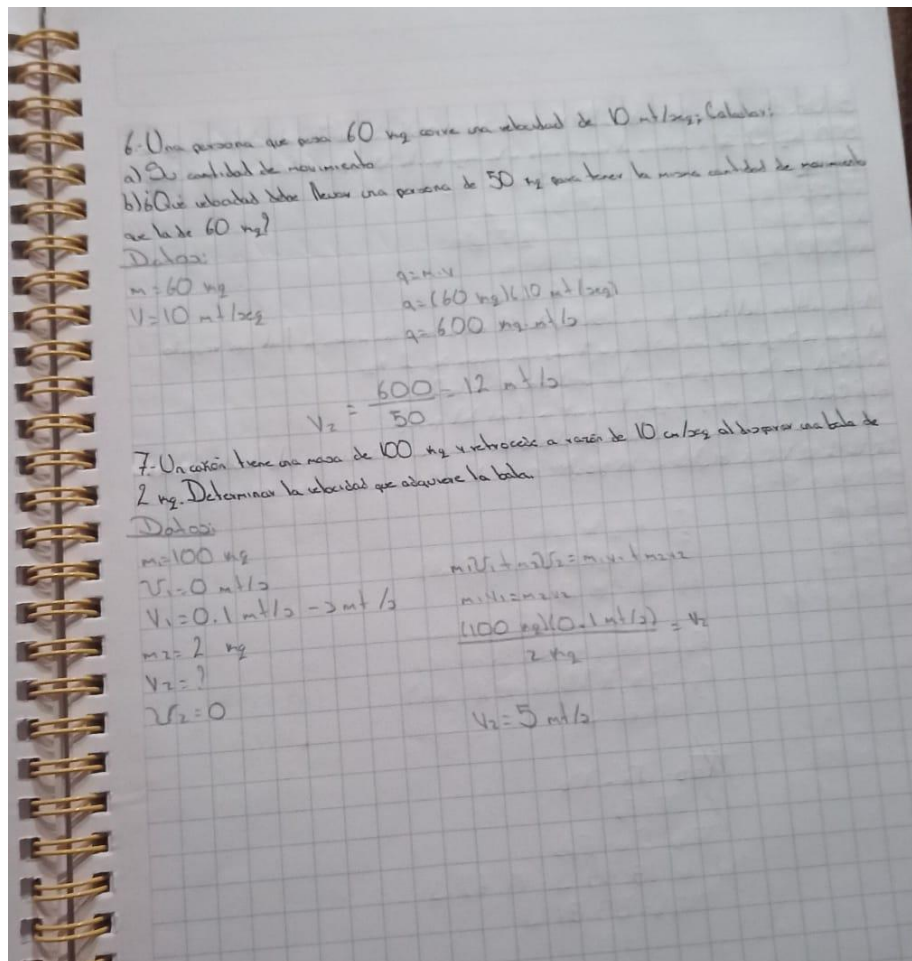 6-Una persona que pesa 60 kg corre una velocidad de 10 mt/seg; Calcular:
a) Su cantidad de movimiento
b) ¿Qué velocidad debe llevar una persona de 50 kg para tener la misma cantidad de movimiento
que la de 60 kg?
Datos:
m=60 kg q=m.v
V=10 mt/seg q=(60 kg)(10 mt/seg)
q=600 kg.mt/s
V2 = 600/50 = 12 mt/s
7-Un cañón tiene una masa de 100 kg y retrocede a razón de 10 cm/seg al disparar una bala de
2 kg. Determinar la velocidad que adquiere la bala.
Datos:
m=100 kg m1V1+m2V2=m1v1+m2v2
V1=0 mt/s m1v1=m2v2
V1=0.1 mt/s (100 kg)(0.1 mt/s)/2 kg = V2
m2=2 kg
V2=?
V2=0 V2=5 mt/s